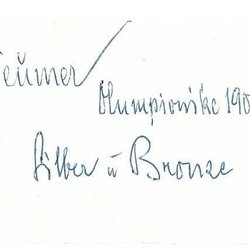 eumer
Olympionike 190
Silber u Bronze